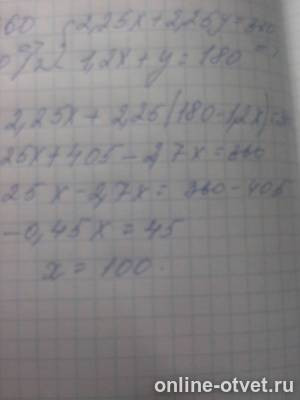 60 { 2,25x + 2,25y = 360
1,2x + y = 180
2,25x + 2,25(180-1,2x)=
25x + 405 - 2,7x = 360
25x - 2,7x = 360 - 405
-0,45x = 45
x = 100.
online-otvet.ru